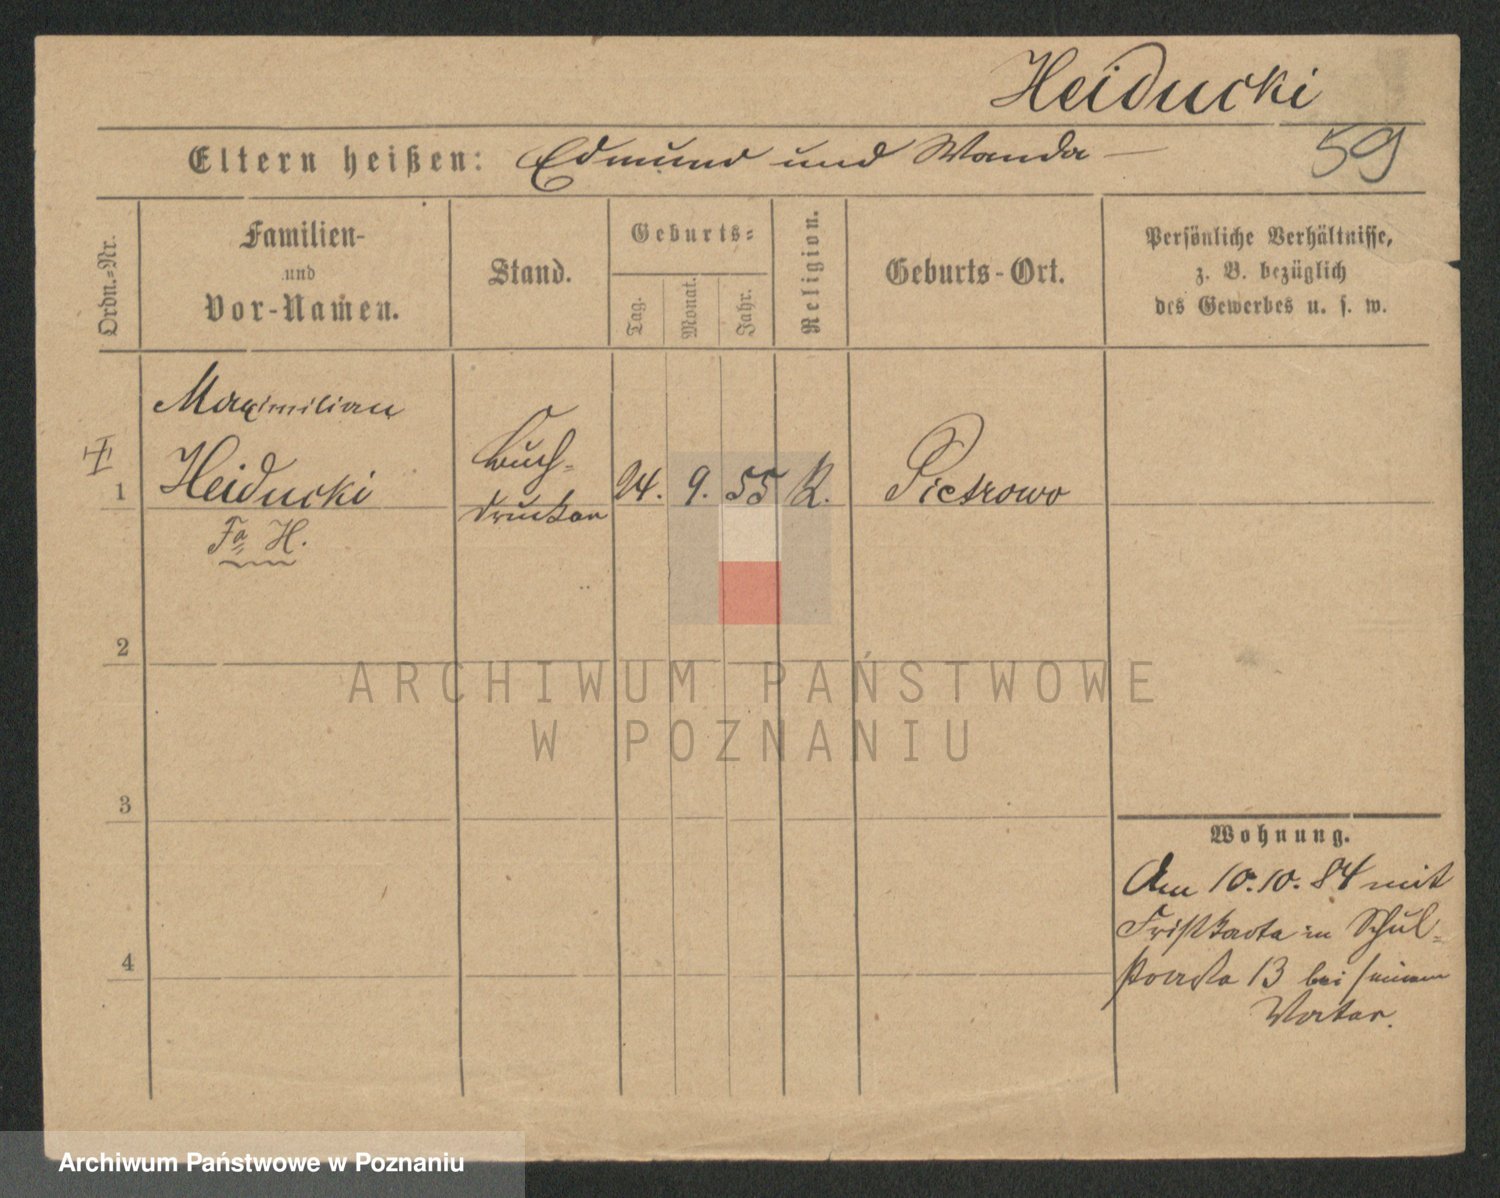 Heiducki
59
Eltern heißen: Edmund und Wanda
Ordn.=Nr.
Familien-
und
Vor-Namen.
Stand.
Geburts=
Tag.
Monat.
Jahr.
Religion.
Geburts-Ort.
Persönliche Verhältnisse,
z. B. bezüglich
des Gewerbes u. s. w.
Maximilian
1 Heiducki
Buch-
drucker
24. 9. 55 K. Pietrowo
Fa H.
2
3
4
ARCHIWUM PAŃSTWOWE
W POZNANIU
Wohnung.
Am 10.10.84 mit
in Schul-
13 bei seinem
Vater.
Archiwum Państwowe w Poznaniu